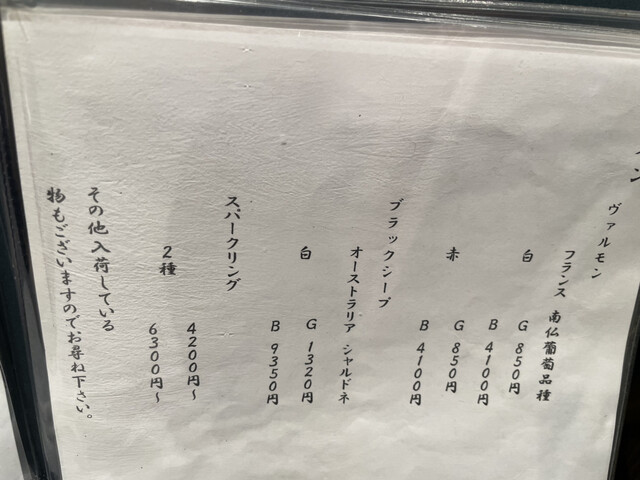 ヴァルモン
フランス 南仏葡萄品種
白 G 850円
B 4100円
赤 G 850円
B 4100円
ブラックシープ
オーストラリア シャルドネ
白 G 1320円
B 9350円
スパークリング
4200円～
2種 6300円～
その他入荷している
物もございますのでお尋ね下さい。